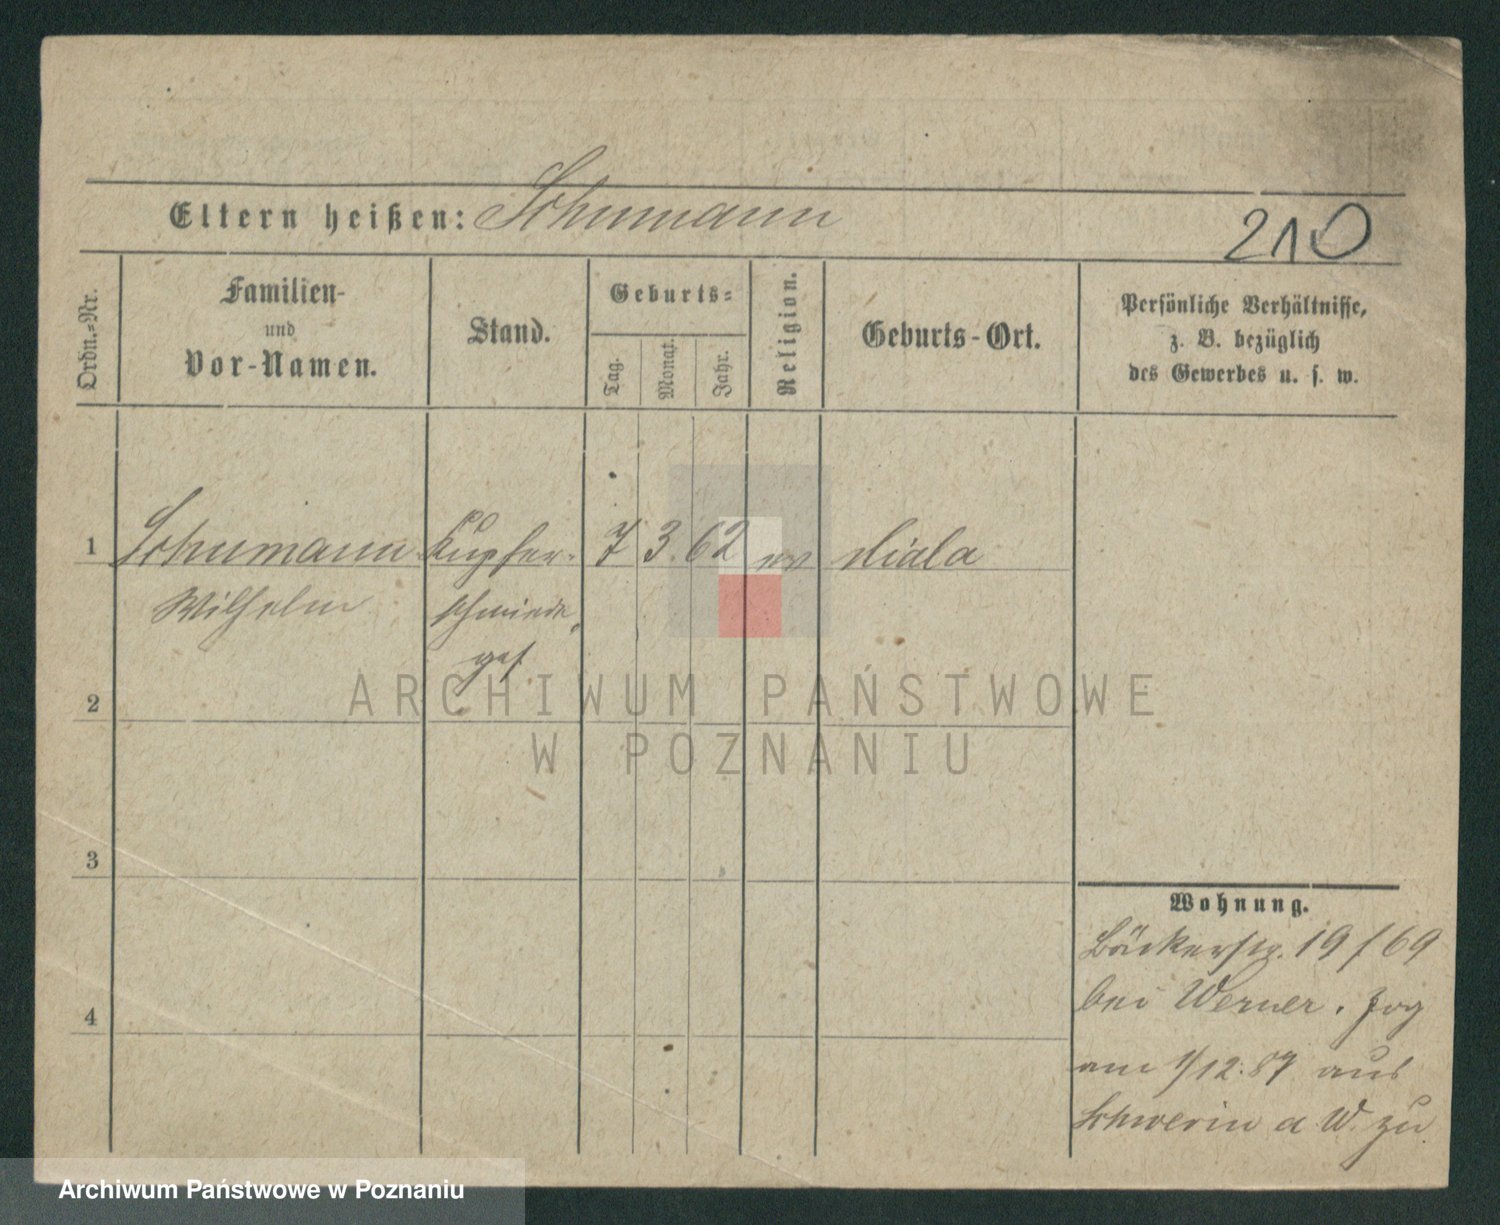 Eltern heißen: Schumann
210
Ordn.=Nr.
Familien-
und
Vor-Namen.
Stand.
Geburts=
Tag.
Monat.
Jahr.
Religion.
Geburts-Ort.
Persönliche Verhältnisse,
z. B. bezüglich
des Gewerbes u. s. w.
1 Schumann Kupfer- 7 3 62
Wilhelm schmiede
ges
2
3
4
Wohnung.
Bäckerstr. 19/69
bei Werner. Zog
am 1/12.87 aus
Schwerin a W. zu
ARCHIWUM PAŃSTWOWE
W POZNANIU
Archiwum Państwowe w Poznaniu